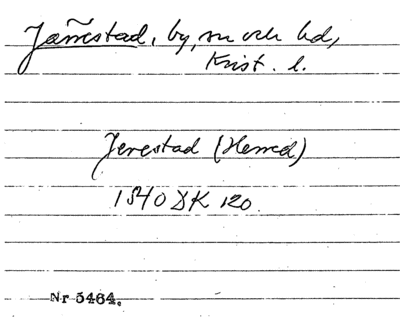 Järrestad, by, sn och hd,
Krist. l.
Jerestad (Herred)
1540 DK 120.
Nr 5464.